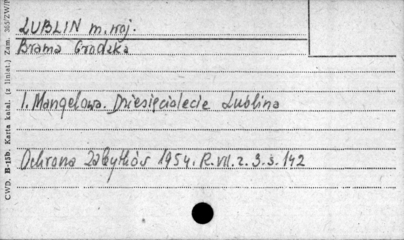 LUBLIN m. woj.
Brama Grodzka
I. Mangelowa. Dziesięciolecie Lublina
Ochrona Zabytków 1954. R. VII. z. 3. s. 142
CWD. B-15b. Karta katal. (z liniat.) Zam.